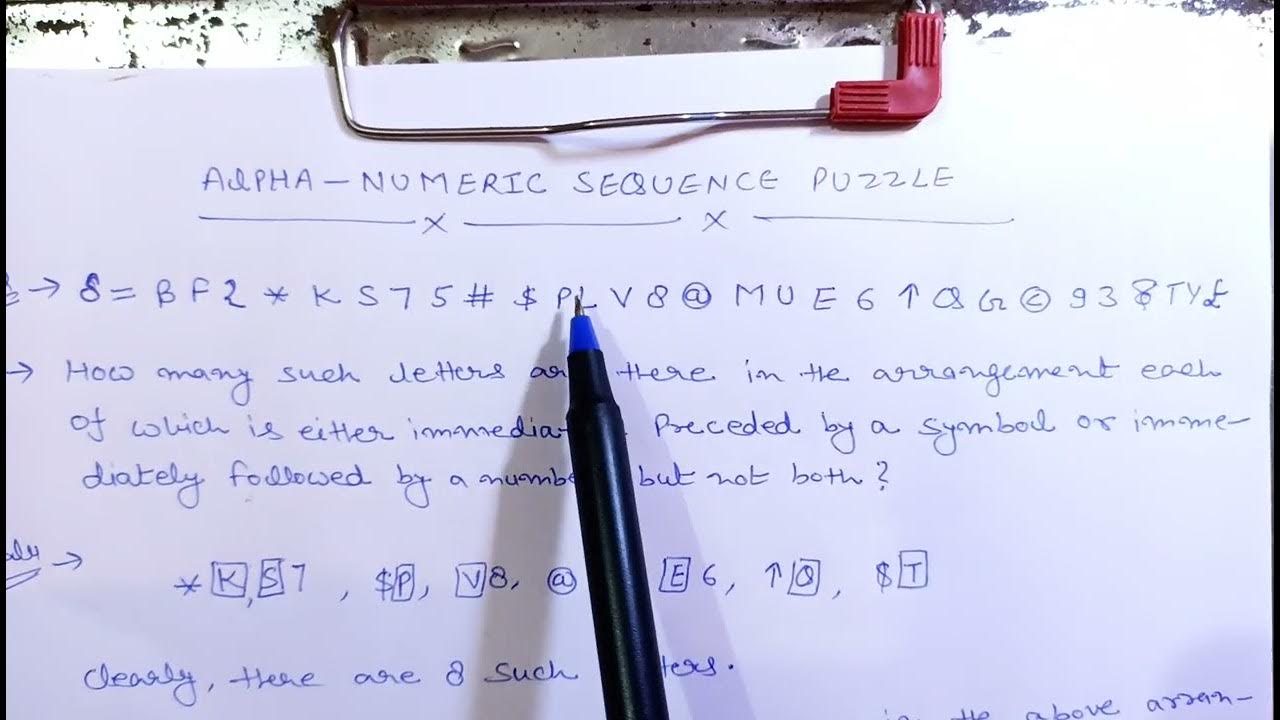 ALPHA-NUMERIC SEQUENCE PUZZLE
x x
→ 8 = B F 2 * K S 7 5 # $ P L V 8 @ M U E 6 ↑ Q G © 9 3 $ T Y £
→ How many such letters are there in the arrangement each
of which is either immediat Preceded by a symbol or imme-
diately followed by a numbe but not both?
→ * K, S 7, $P, V8, @ E 6, ↑Q, $T
Clearly, there are 8 such ters.
in the above arran-